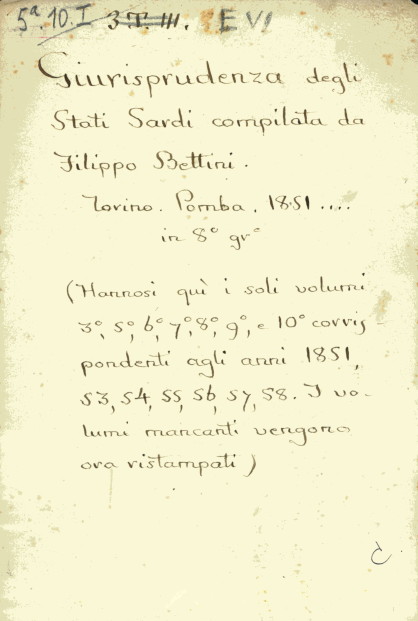 5ª.10.I 3 T. III. E VI
Giurisprudenza degli
Stati Sardi compilata da
Filippo Bettini.
Torino. Pomba. 1851....
in 8º grº
(Hannosi quì i soli volumi
3º, 5º, 6º, 7º, 8º, 9º, e 10º corris-
pondenti agli anni 1851,
53, 54, 55, 56, 57, 58. I vo-
lumi mancanti vengono
ora ristampati)